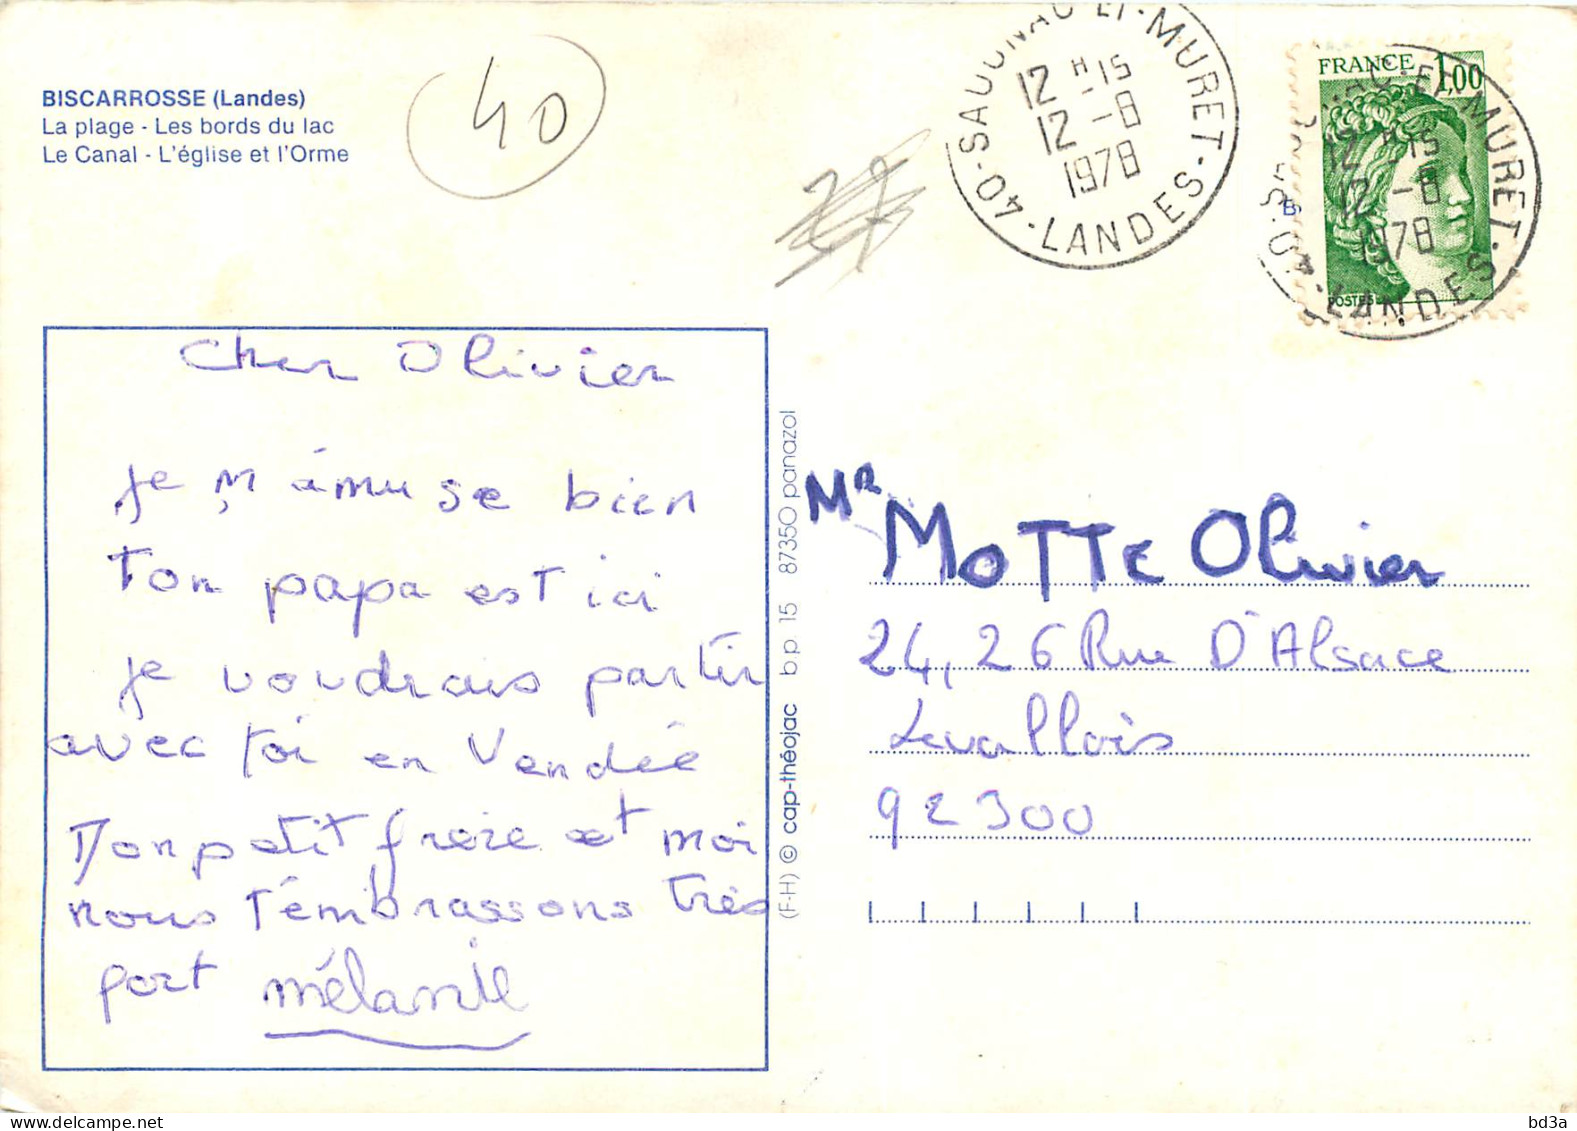 BISCARROSSE (Landes)
La plage - Les bords du lac
Le Canal - L'église et l'Orme
40
27
40 - SAUGNAC ET MURET - LANDES
12 H 15
12 - 8
1978
FRANCE 1,00
POSTES
40 - SAUGNAC ET MURET - LANDES
12 H 15
12 - 8
1978
Cher Olivier
Je m'ámuse bien
Ton papa est ici
je voudrais partir
avec toi en Vendée
Ton petit frère et moi
nous t'émbrassons très
fort mélanie
(F-H) © cap-théojac bp 15 87350 panazol
Mr MOTTE Olivier
24, 26 Rue D'Alsace
Levallois
92300
bd3a